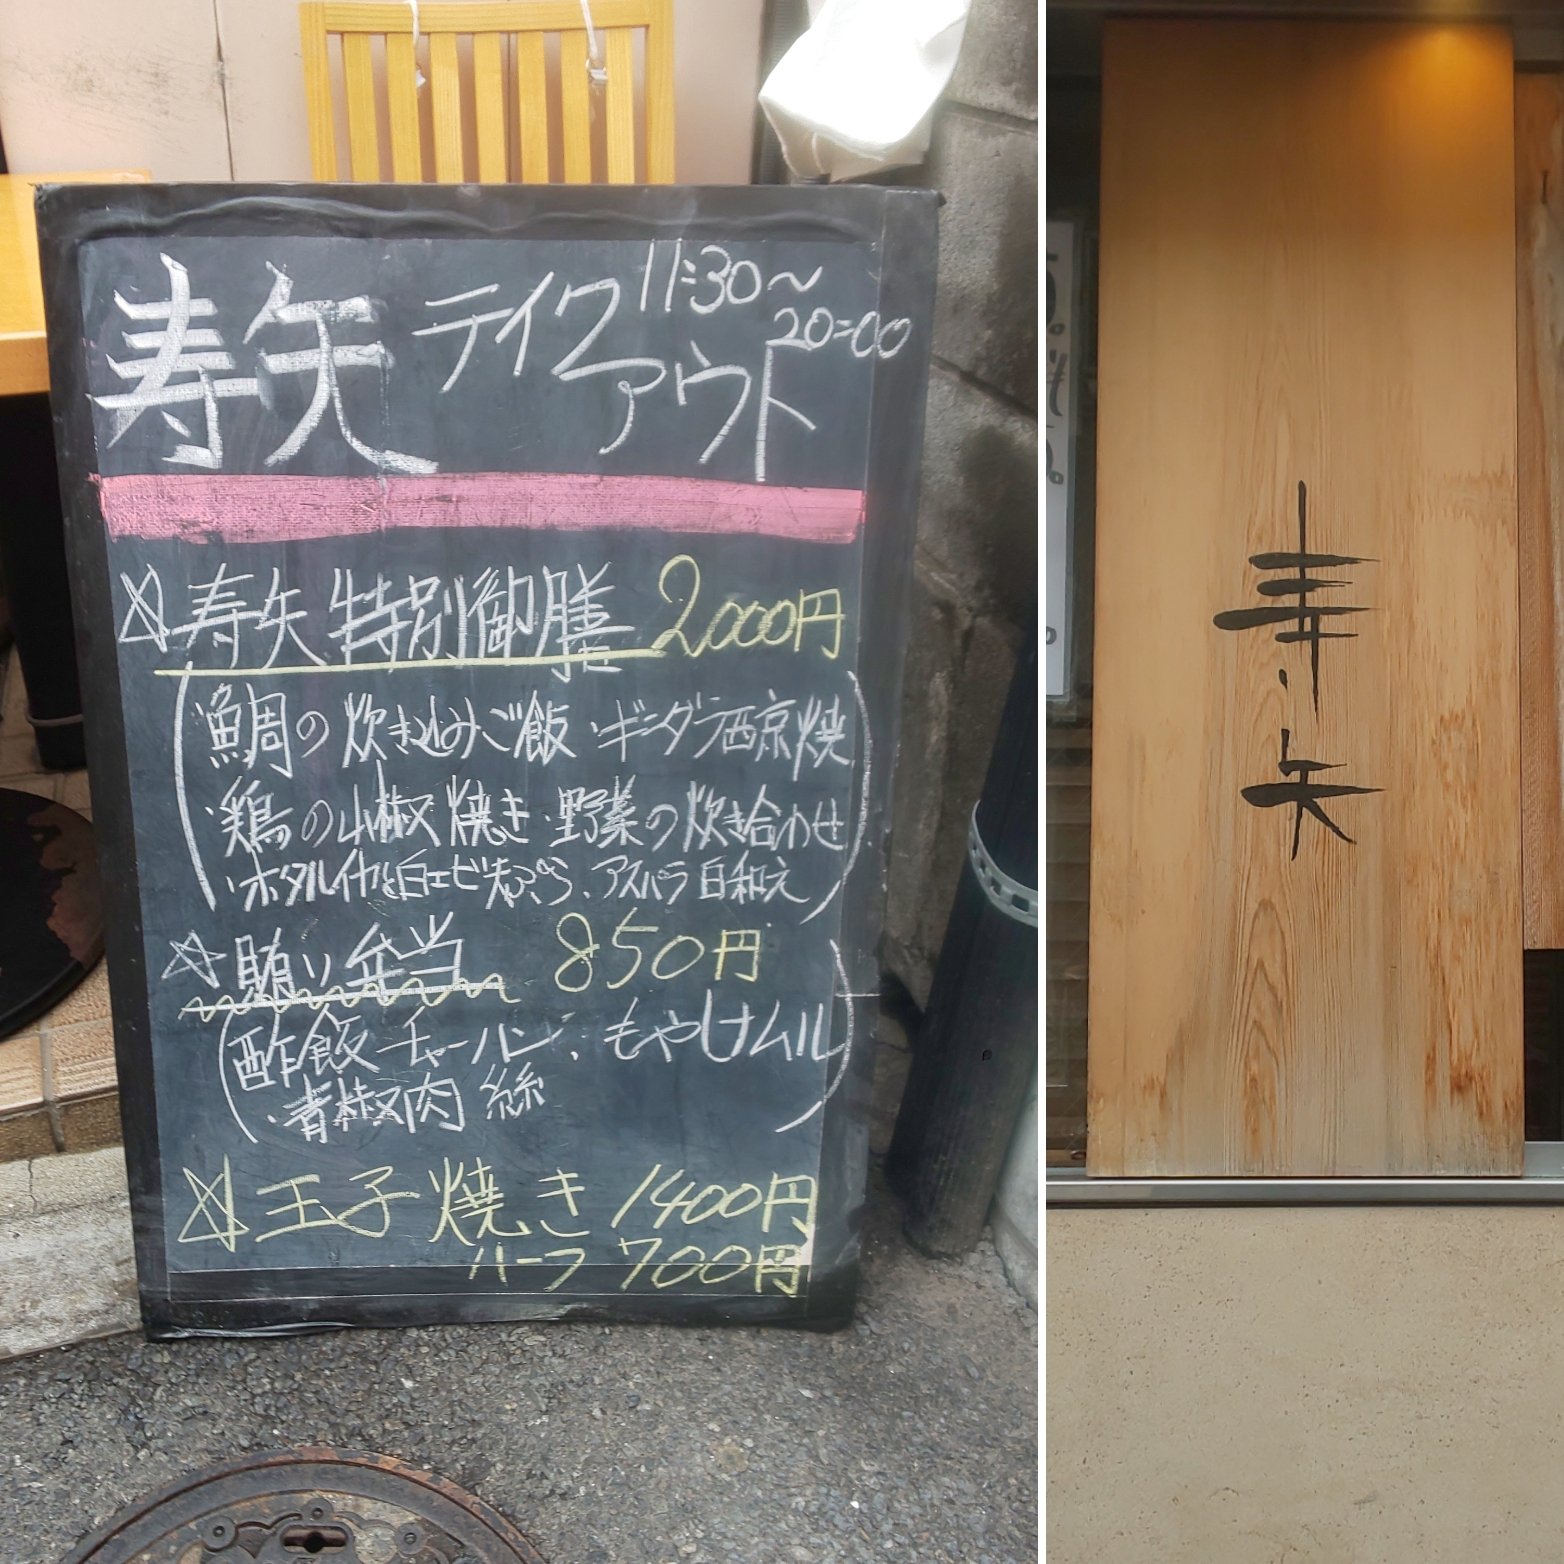 寿矢 テイク 11:30〜
アウト 20:00
☆寿矢 特別御膳 2000円
(鯛の炊き込みご飯・ギンダラ西京焼
・鶏の山椒焼き・野菜の炊き合わせ
・ホタルイカと白エビ天ぷら、アスパラ白和え)
☆賄い弁当 850円
(酢飯チャーハン、もやしナムル
・青椒肉絲)
☆玉子焼き 1400円
ハーフ 700円
寿・矢